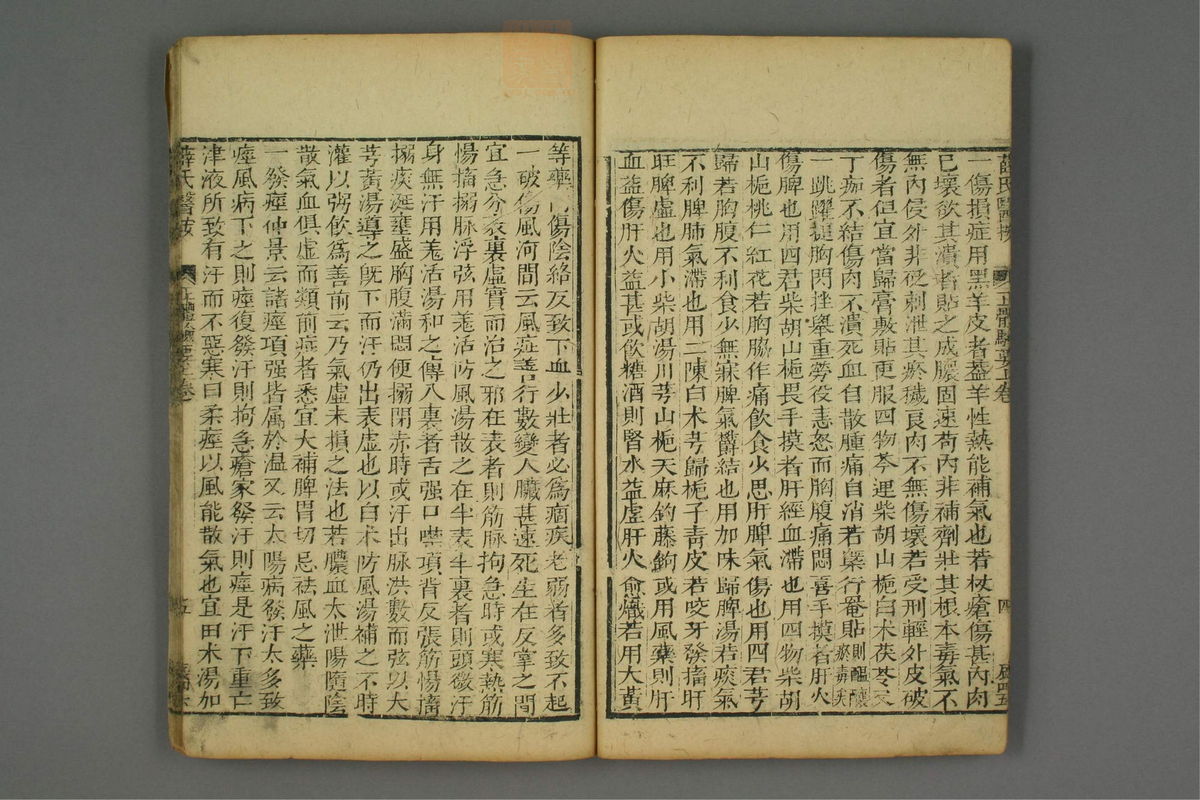 薛氏醫按 正體類要上卷 四
一傷損症用黑羊皮者蓋羊性熱能補氣也若杖瘡傷甚內肉
已壞欲其潰者貼之成膿固速苟內非補劑壯其根本毒氣不
無內侵外非砭刺泄其瘀穢良肉不無傷壞若受刑輕外皮破
傷者但宜當歸膏敷貼更服四物芩連柴胡山梔白朮茯苓又
丁痂不結傷肉不潰死血自散腫痛自消若槩行罨貼則醞釀瘀毒矣
一跳躍搥胸閃挫舉重勞役恚怒而胸腹痛悶喜手摸者肝火
傷脾也用四君柴胡山梔畏手摸者肝經血滯也用四物柴胡
山梔桃仁紅花若胸脇作痛飲食少思肝脾氣傷也用四君芎
歸若胸腹不利食少無寐脾氣欝結也用加味歸脾湯若痰氣
不利脾肺氣滯也用二陳白朮芎歸梔子青皮若咬牙發搐肝
旺脾虛也用小柴胡湯川芎山梔天麻釣藤鉤或用風藥則肝
血益傷肝火益甚或飲糖酒則腎水益虛肝火愈熾若用大黃
等藥內傷陰絡反致下血少壯者必爲痼疾老弱者多致不起
一破傷風河間云風症善行數變入臟甚速死生在反掌之間
宜急分表裏虛實而治之邪在表者則筋脉拘急時或寒熱筋
惕搐搦脉浮弦用羗活防風湯散之在半表半裏者則頭微汗
身無汗用羗活湯和之傳入裏者舌强口噤項背反張筋惕搐
搦痰涎壅盛胸腹滿悶便搦閉赤時或汗出脉洪數而弦以大
芎黃湯導之既下而汗仍出表虛也以白朮防風湯補之不時
灌以粥飲爲善前云乃氣虛未損之法也若膿血太泄陽隨陰
散氣血俱虛而類前症者悉宜大補脾胃切忌祛風之藥
一發痙仲景云諸痙項强皆属於温又云太陽病發汗太多致
痙風病下之則痙復發汗則拘急瘡家發汗則痙是汗下重亡
津液所致有汗而不惡寒曰柔痙以風能散氣也宜白朮湯加
薛氏醫按 正體類要上卷 五